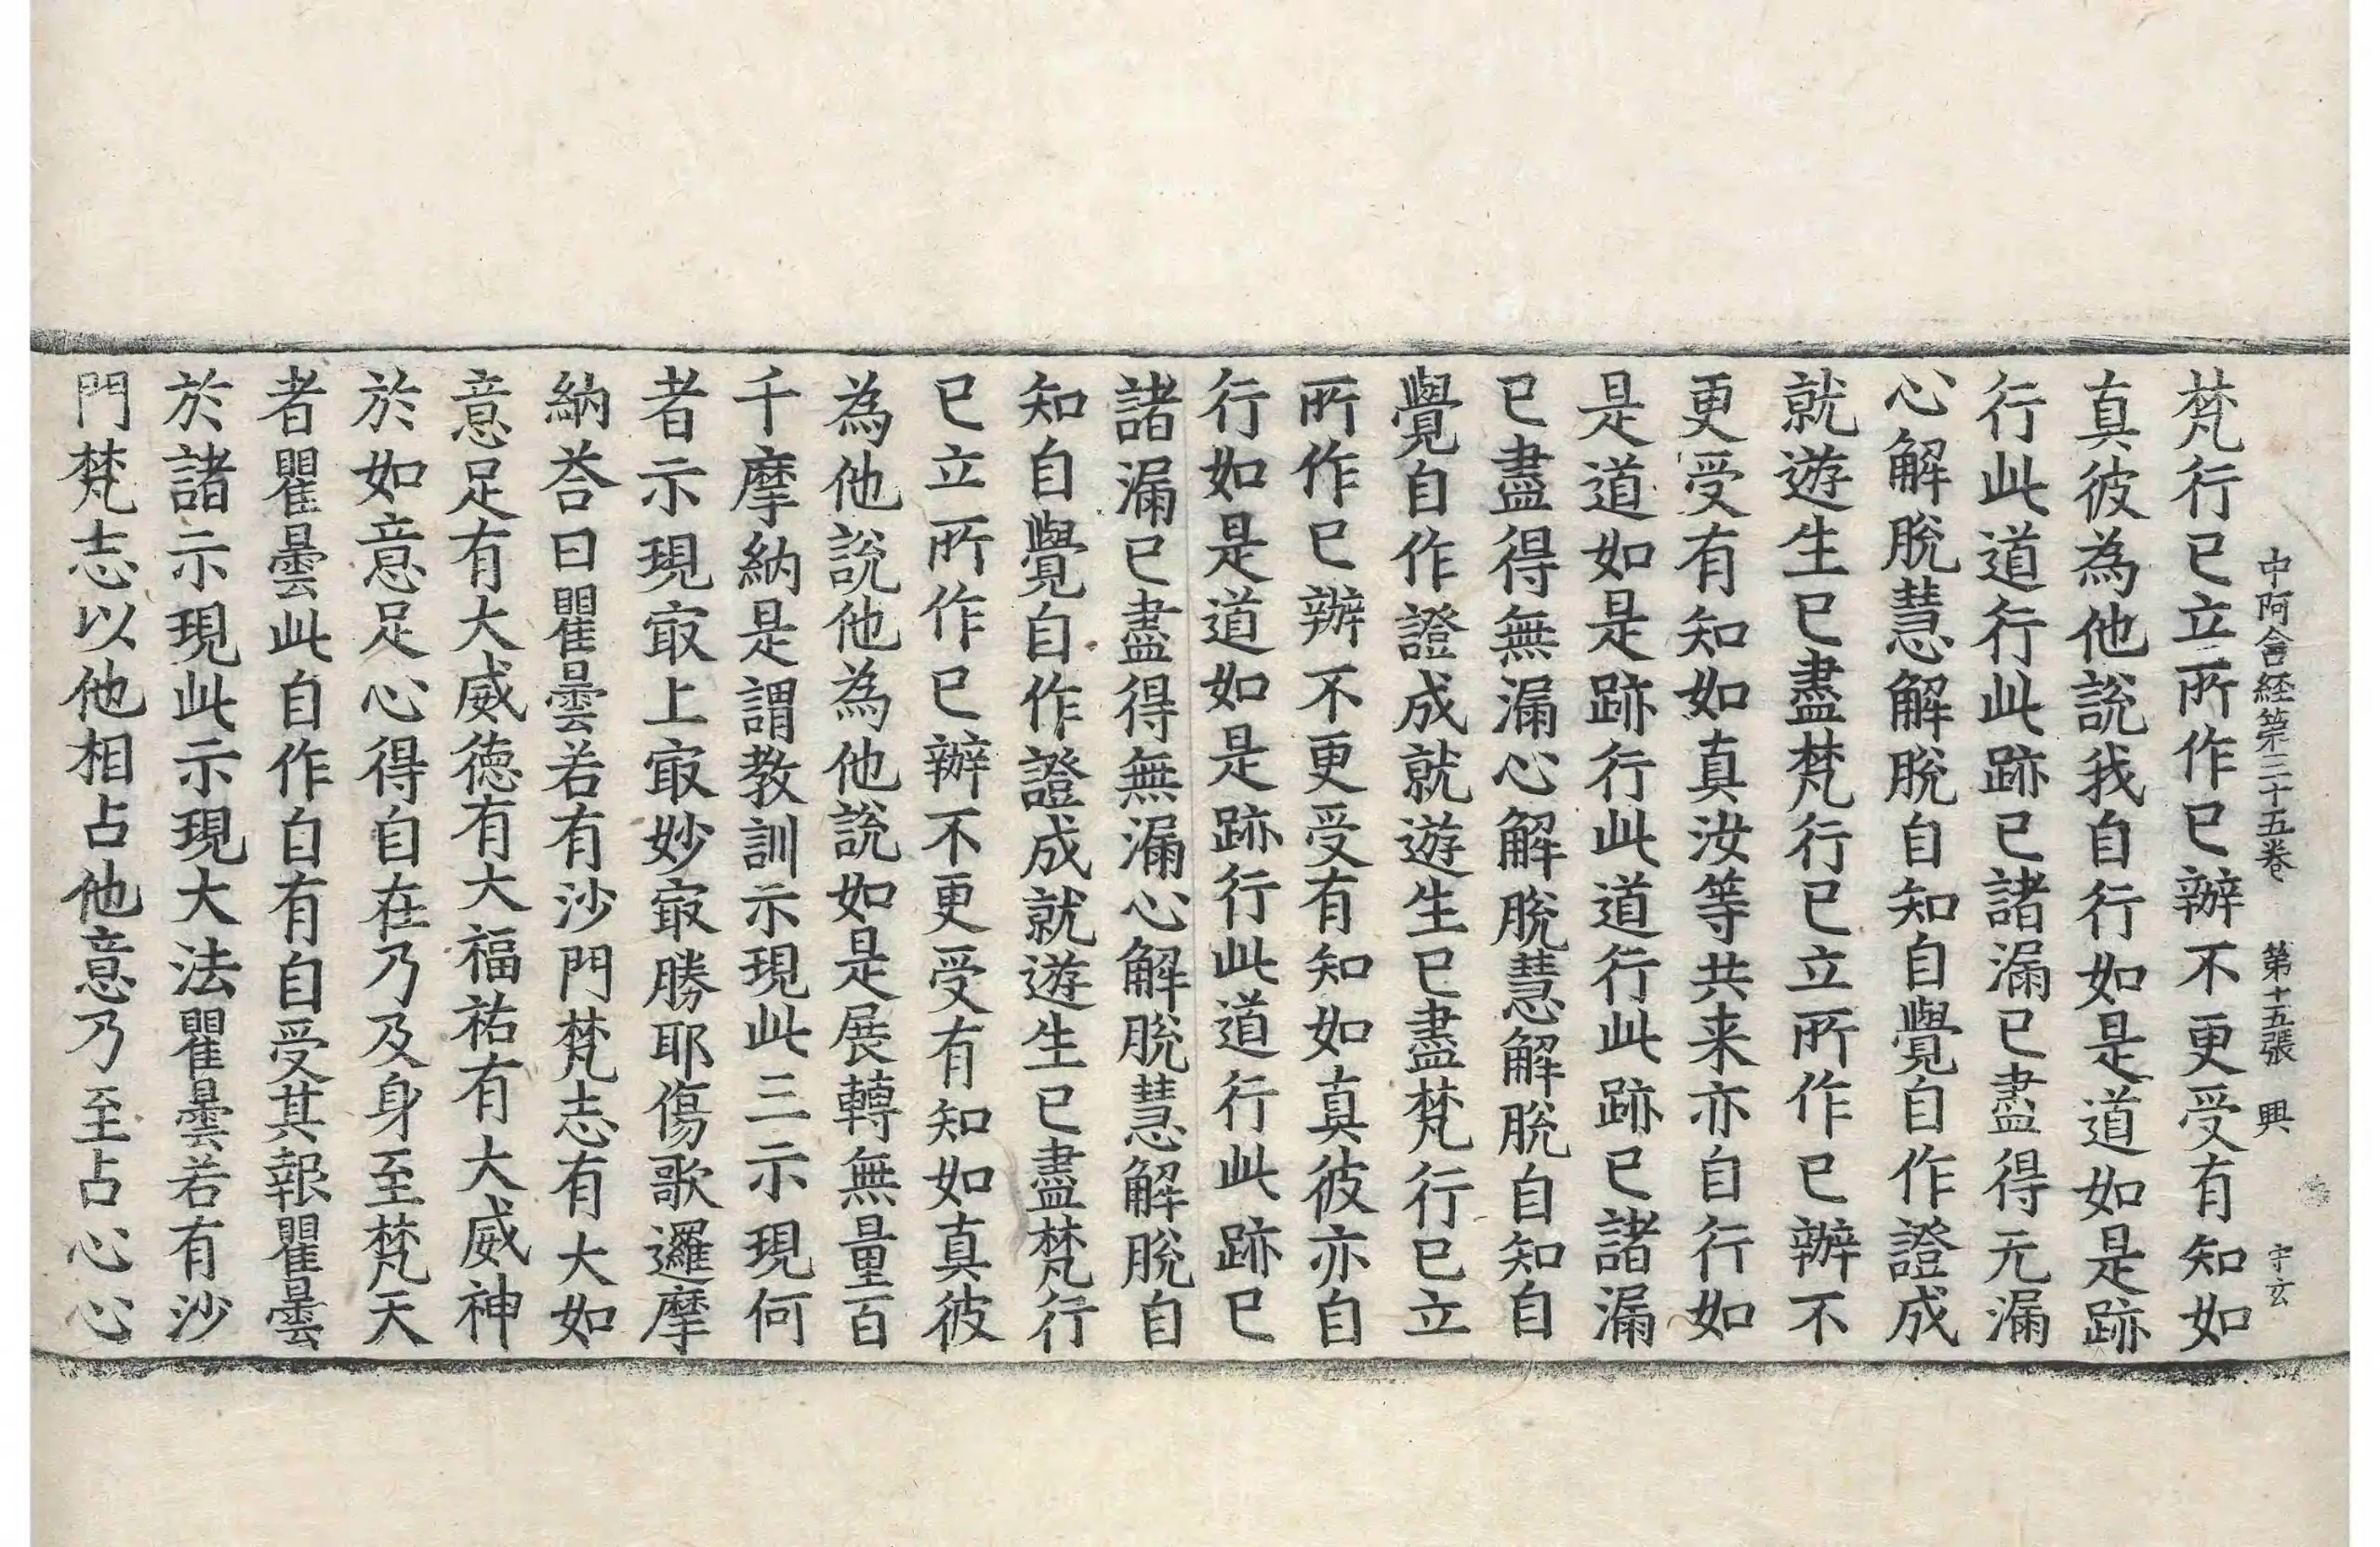 中阿含経第三十五卷 第十五張 興 宇玄
梵行已立所作已辦不更受有知如
真彼為他說我自行如是道如是跡
行此道行此跡已諸漏已盡得无漏
心解脫慧解脫自知自覺自作證成
就遊生已盡梵行已立所作已辦不
更受有知如真汝等共来亦自行如
是道如是跡行此道行此跡已諸漏
已盡得無漏心解脫慧解脫自知自
覺自作證成就遊生已盡梵行已立
所作已辦不更受有知如真彼亦自
行如是道如是跡行此道行此跡已
諸漏已盡得無漏心解脫慧解脫自
知自覺自作證成就遊生已盡梵行
已立所作已辦不更受有知如真彼
為他說他為他說如是展轉無量百
千摩納是謂教訓示現此三示現何
者示現㝡上㝡妙㝡勝耶傷歌邏摩
納荅曰瞿曇若有沙門梵志有大如
意足有大威德有大福祐有大威神
於如意足心得自在乃及身至梵天
者瞿曇此自作自有自受其報瞿曇
於諸示現此示現大法瞿曇若有沙
門梵志以他相占他意乃至占心心